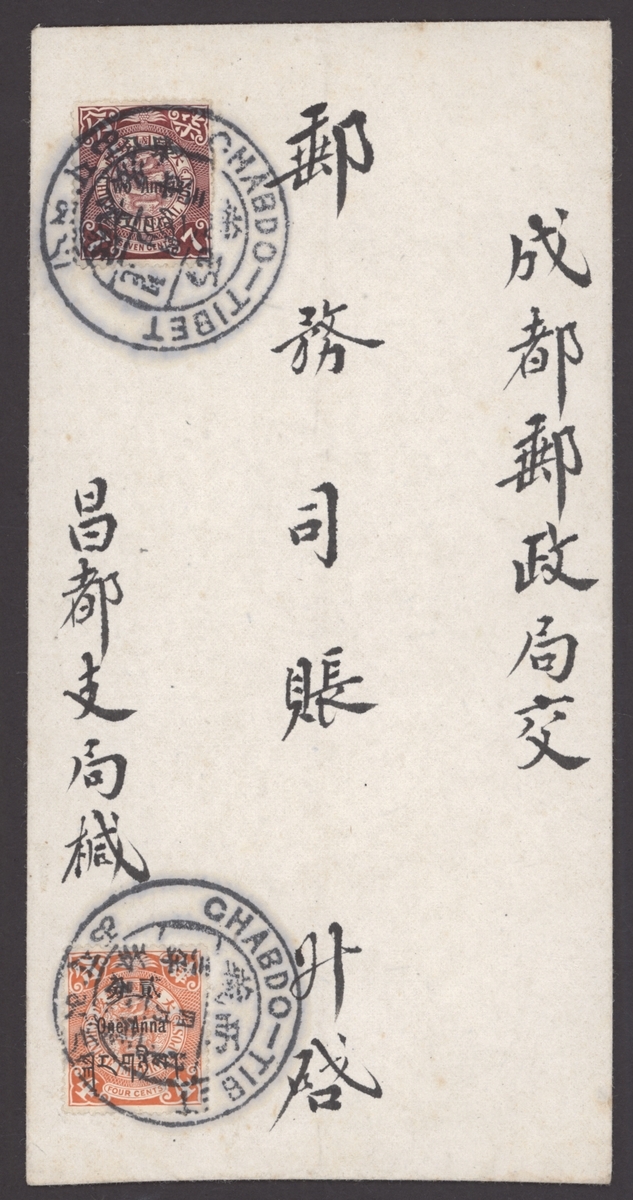 成都郵政局交
郵務司賬 升啓
昌都支局椷
CHABDO—TIBET
7
SEVEN CENTS
CHABDO—TIB
One Anna
FOUR CENTS